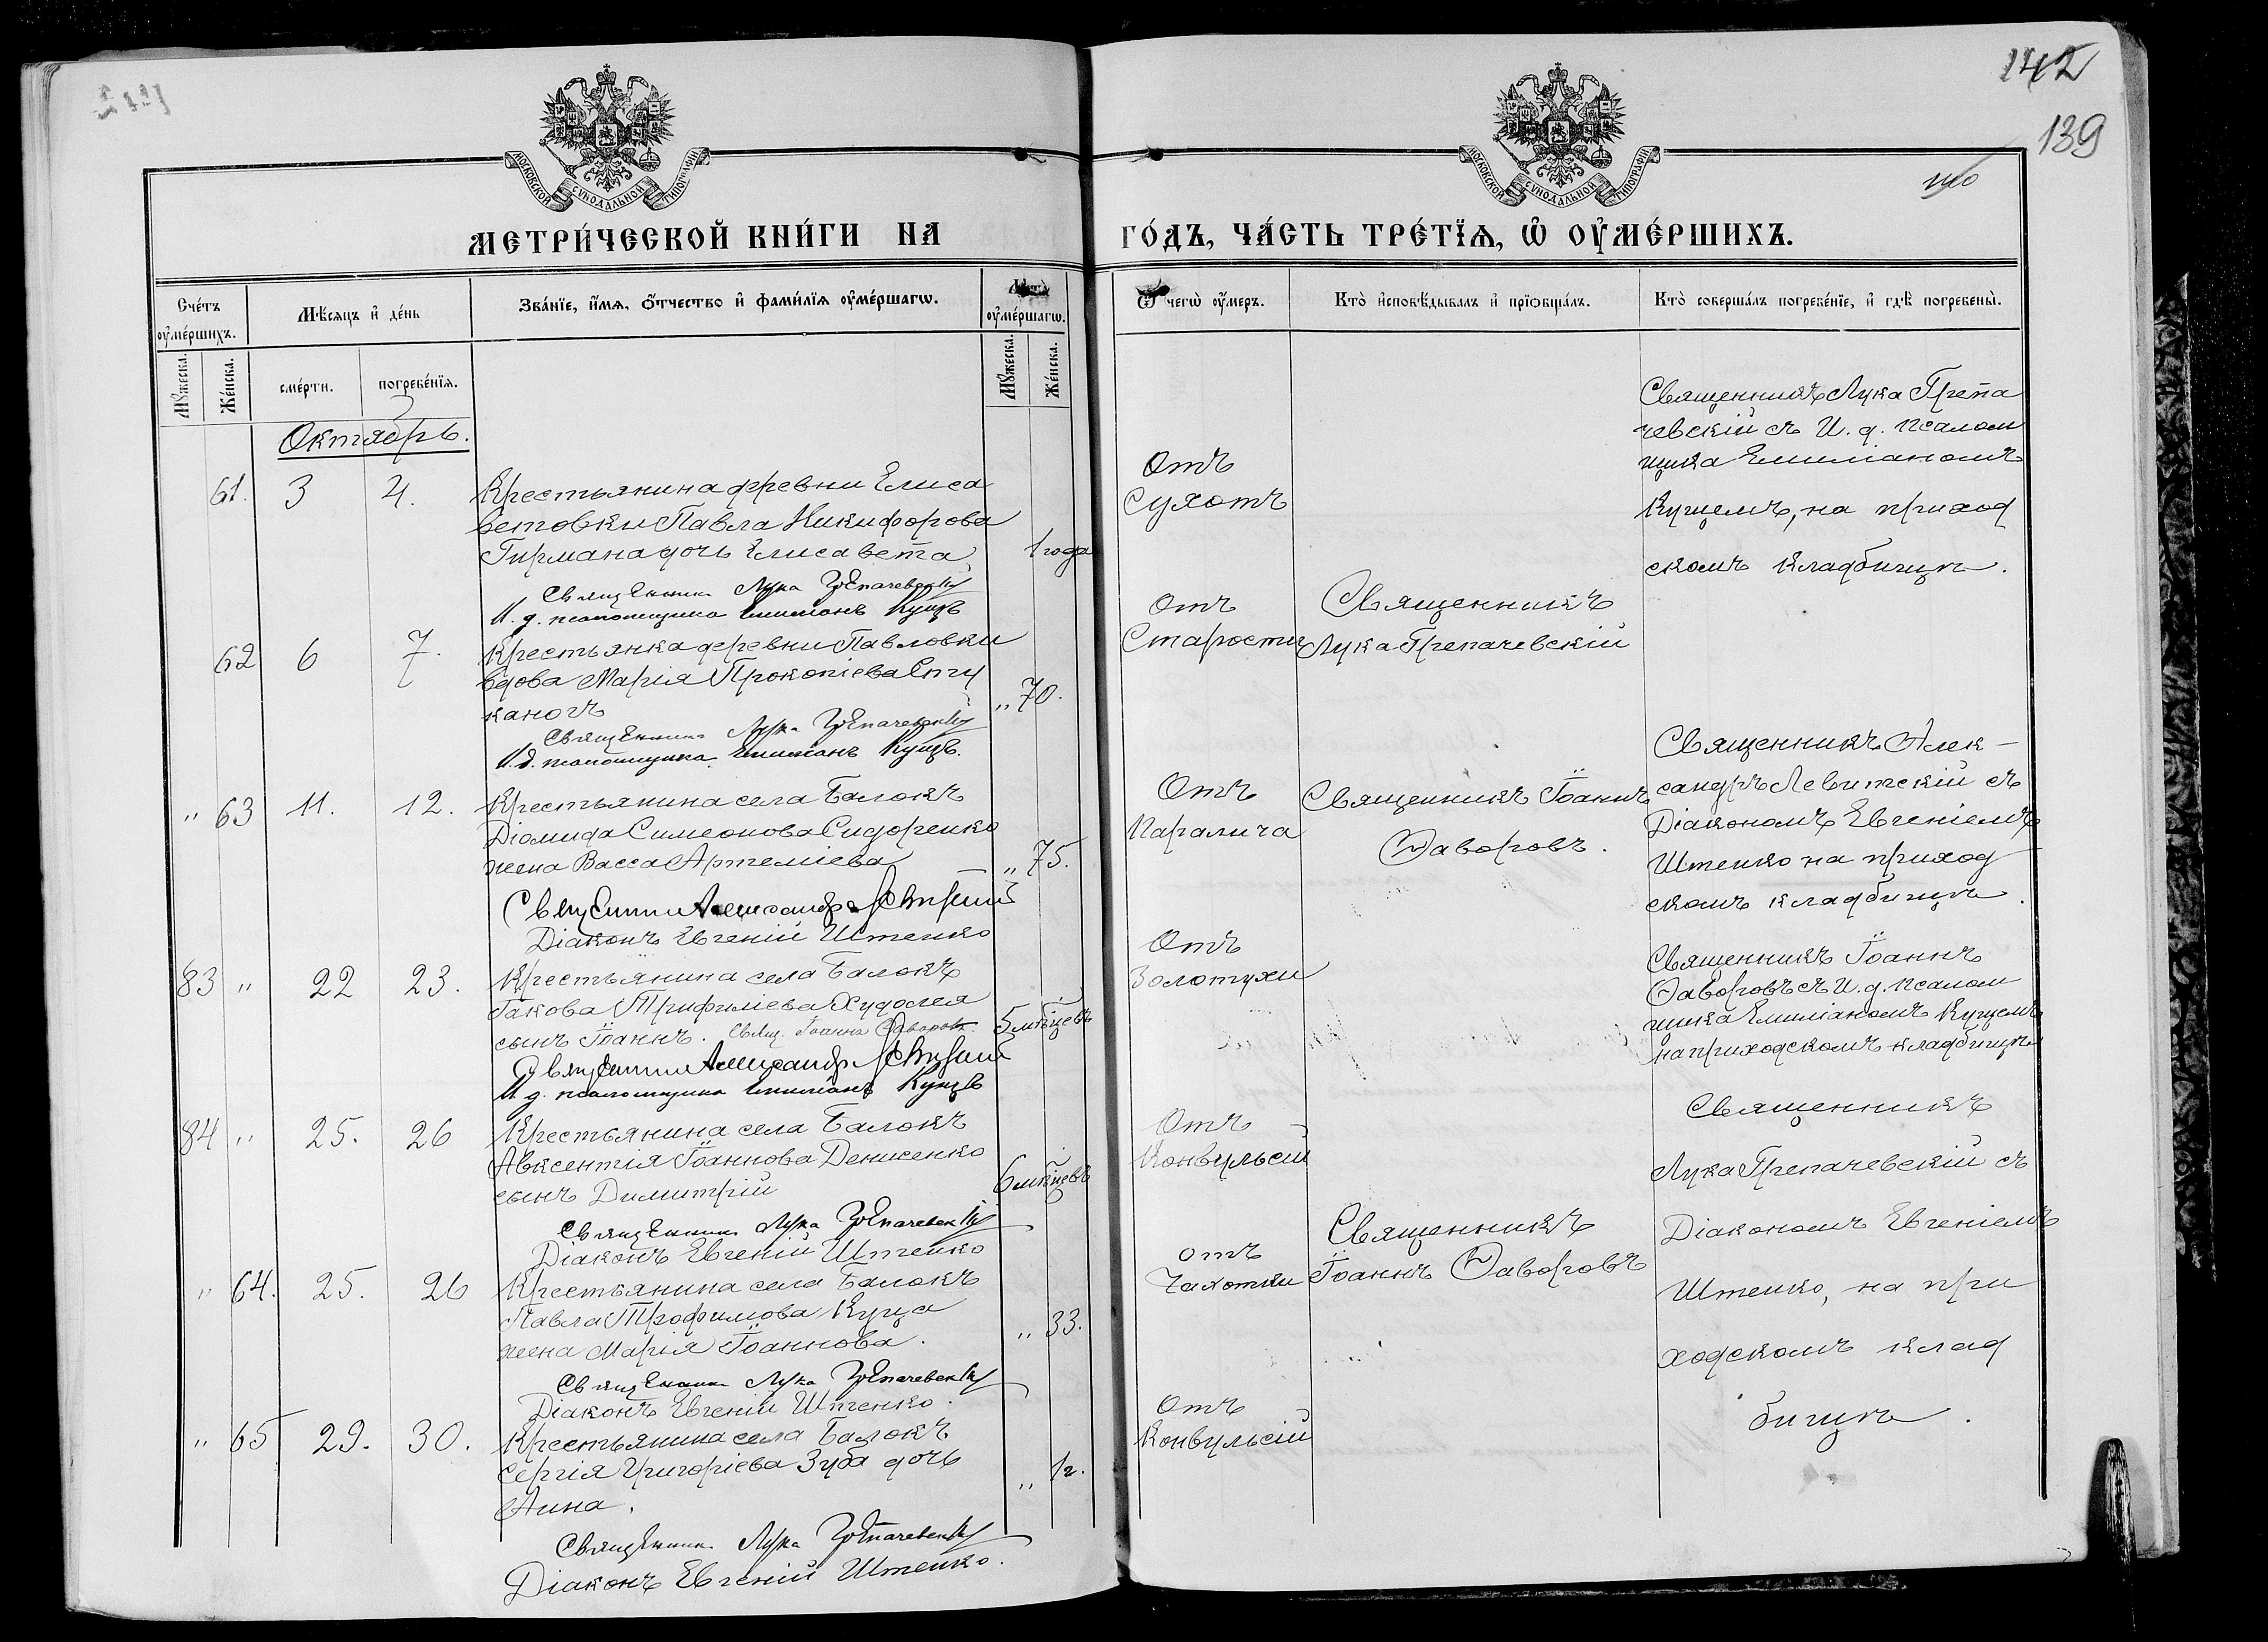 142
139
МОСКОВСКОЙ СѴНОДАЛЬНОЙ ТИПОГРАФІИ
МОСКОВСКОЙ СѴНОДАЛЬНОЙ ТИПОГРАФІИ
МЕТРИ́ЧЕСКОЙ КНИ́ГИ НА ГО́ДЪ, ЧА́СТЬ ТРЕ́ТЇѦ, Ѡ҆ ОУ҆МЕ́РШИХЪ.
Сче́тъ оу҆ме́ршихъ.
Мѣ́сяцъ и҆ де́нь
Зва́нїе, и҆́мѧ, ѻ҆́тчество и҆ фами́лїѧ оу҆ме́ршагѡ.
Лѣта̀ оу҆ме́ршагѡ.
Ѿ чегѡ̀ оу҆́меръ.
Кто̀ и҆сповѣ́дывалъ и҆ прїѡбща́лъ.
Кто̀ соверша́лъ погребе́нїе, и҆ гдѣ̀ погребены̀.
Мꙋ́жеска.
Же́нска.
сме́рти.
погребе́нїѧ.
Мꙋ́жеска.
Же́нска.
Октябрь.
61. 3 4.
Крестьянина деревни Елиса
ветовки Павла Никифорова
Гирмана дочь Елисавета 1 года
Священникъ Лука Грепачевскій
И. д. псаломщика Емиліанъ Куцъ
Отъ
Сухотъ
Священникъ Лука Грепа
чевскій съ И. д. псалом
щика Емиліаномъ
Куцемъ, на приход
скомъ кладбищѣ.
62 6 7.
Крестьянка деревни Павловки
вдова Марія Прокопіева Сту
каногъ „ 70.
Священникъ Лука Грепачевскій
И. д. псаломщика Емиліанъ Куцъ.
Отъ
Старости
Священникъ
Лука Грепачевскій
„ 63 11. 12.
Крестьянина села Балокъ
Діомида Симеонова Сидоренко
жена Васса Артеміева „ 75.
Священникъ Александръ Левитскій
Діаконъ Евгеній Штенко
Отъ
Паралича
Священникъ Іоаннъ
Ѳаворовъ.
Священникъ Алек-
сандръ Левитскій съ
Діакономъ Евгеніемъ
Штенко на приход
скомъ кладбищѣ.
83 „ 22 23.
Крестьянина села Балокъ
Іакова Трифиліева Худолея
сынъ Іоаннъ. Свящ. Іоаннъ Ѳаворовъ 5 мѣсцевъ
Священникъ Александръ Левитскій
И. д. псаломщика Емиліанъ Куцъ
Отъ
Золотухи
Священникъ Іоаннъ
Ѳаворовъ съ И. д. псалом
щика Емиліаномъ Куцемъ
на приходскомъ кладбищѣ
84 „ 25. 26
Крестьянина села Балокъ
Авксентія Іоаннова Денисенко
сынъ Димитрій 6 мѣсцевъ
Священникъ Лука Грепачевскій
Діаконъ Евгеній Штенко
Отъ
Конвульсій
Священникъ
Лука Грепачевскій съ
Діакономъ Евгеніемъ
Штенко, на при
ходскомъ клад
бищѣ.
„ 64. 25. 26
Крестьянина села Балокъ
Павла Трофимова Куца
жена Марія Іоаннова. „ 33.
Священникъ Лука Грепачевскій
Діаконъ Евгеній Штенко.
отъ
Чахотки
Священникъ
Іоаннъ Ѳаворовъ
„ 65 29. 30.
Крестьянина села Балокъ
Сергія Григоріева Зуба дочь
Анна. „ 1 г.
Священникъ Лука Грепачевскій
Діаконъ Евгеній Штенко.
Отъ
Конвульсій